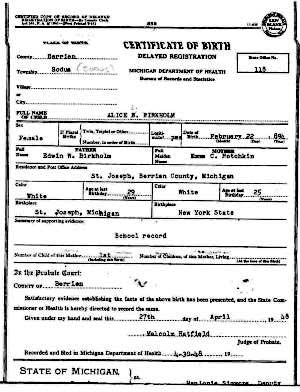 CERTIFIED COPY OF RECORD OF DELAYED
REGISTRATION OF BIRTH
838
PLACE OF BIRTH
CERTIFICATE OF BIRTH
County Berrien
DELAYED REGISTRATION
State Office No.
Township Sodus (Sodus)
MICHIGAN DEPARTMENT OF HEALTH
118
Bureau of Records and Statistics
Village
or
City
FULL NAME OF CHILD ALICE N. BIRKHOLM
Sex Female
If Plural Births
Twin, Triplet or Other
Number, in order of Birth
Legitimate? yes
Date of Birth February 22
(Month) (Day) (Year)
FATHER
MOTHER
Full Name Edwin W. Birkholm
Full Maiden Name Emma C. Potchkin
Residence and Post Office Address
St. Joseph, Berrien County, Michigan
Color White
Age at last birthday 29 (Years)
Color White
Age at last birthday 25 (Years)
Birthplace St. Joseph, Michigan
Birthplace New York State
Summary of supporting evidence:
School record
Number of Child of this Mother 1st
Number of Children, of this Mother, Living
(At the time of this birth)
In the Probate Court:
COUNTY OF Berrien
Satisfactory evidence establishing the facts of the above birth has been presented, and the State Com-
missioner of Health is hereby directed to record the same.
Given under my hand and seal this 27th day of April 1948
Malcolm Hatfield
Judge of Probate.
Recorded and filed in Michigan Department of Health 4-30-48 19
STATE OF MICHIGAN,
ss.
Deputy